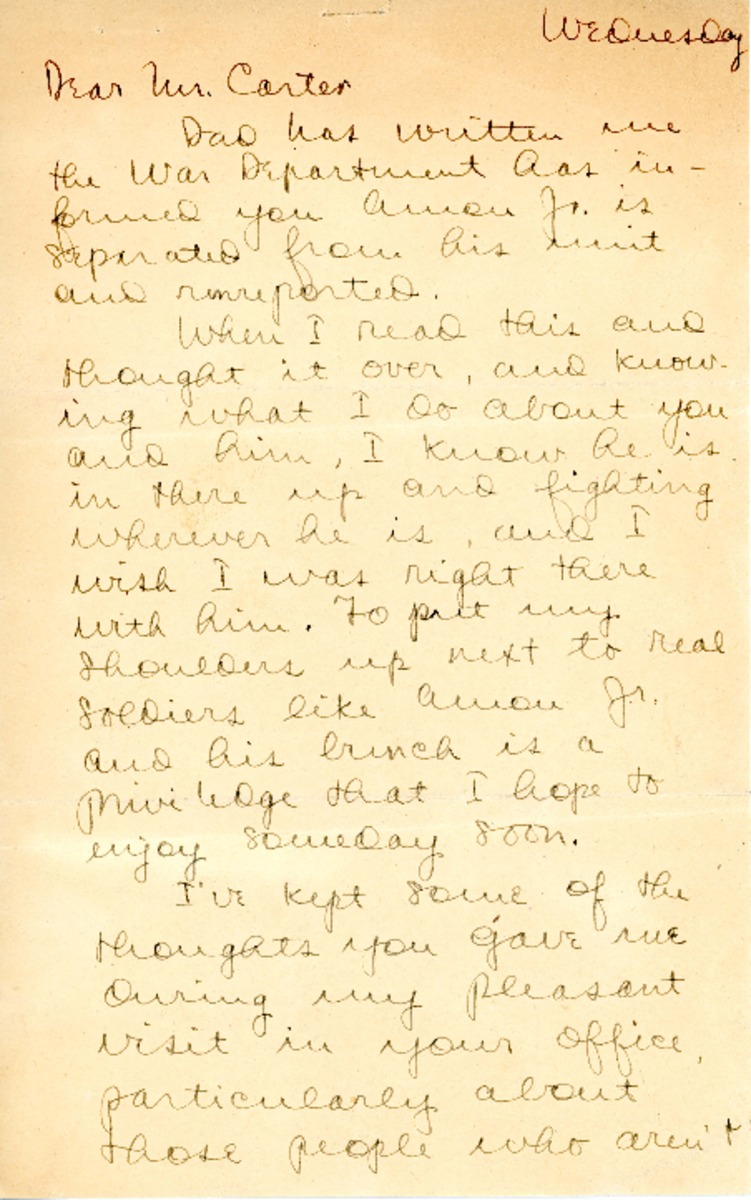 Wednesday
Dear Mr. Carter
Dad has written me
the War Department has in-
formed you Amon Jr. is
separated from his unit
and unreported.
When I read this and
thought it over, and know-
ing what I do about you
and him, I know he is
in there up and fighting
wherever he is, and I
wish I was right there
with him. To put my
shoulders up next to real
soldiers like Amon Jr.
and his bunch is a
priviledge that I hope to
enjoy someday soon.
I've kept some of the
thoughts you gave me
during my pleasant
visit in your office,
particularly about
those people who aren't